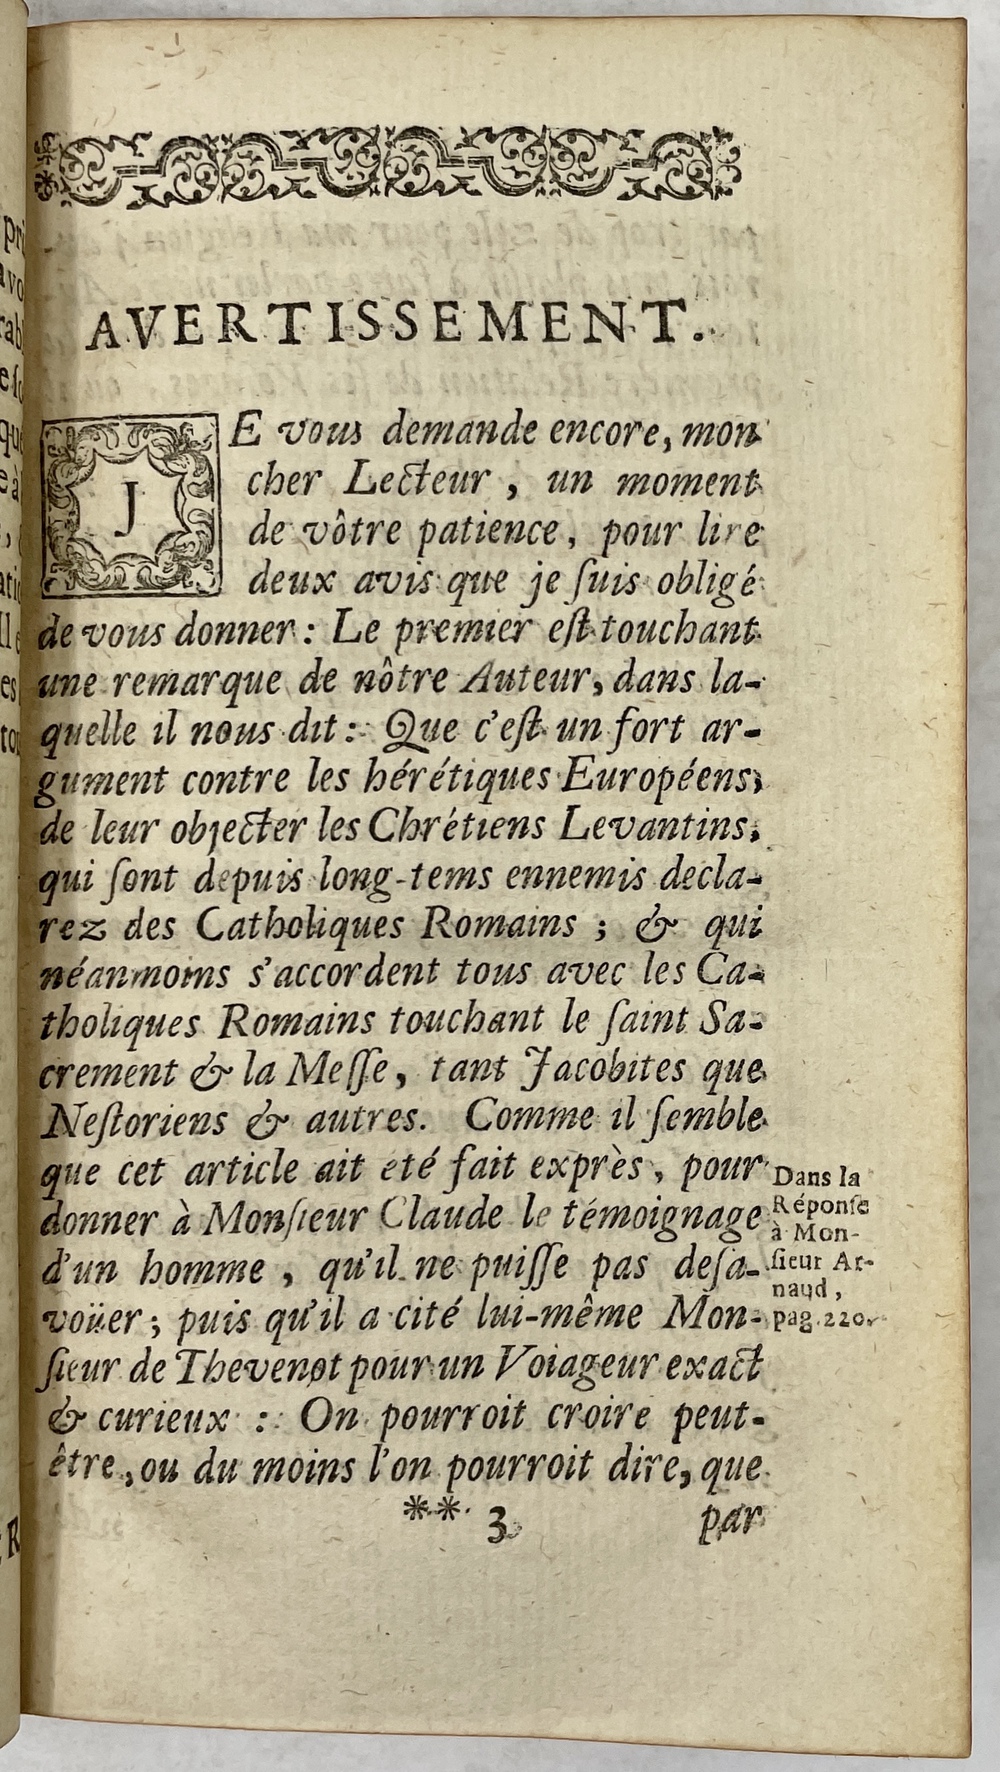 AVERTISSEMENT.
JE vous demande encore, mon
cher Lecteur, un moment
de vôtre patience, pour lire
deux avis que je ſuis obligé
de vous donner : Le premier eſt touchant
une remarque de nôtre Auteur, dans la-
quelle il nous dit : Que c'eſt un fort ar-
gument contre les hérétiques Européens,
de leur objecter les Chrétiens Levantins,
qui ſont depuis long-tems ennemis decla-
rez des Catholiques Romains ; & qui
néanmoins s'accordent tous avec les Ca-
tholiques Romains touchant le ſaint Sa-
crement & la Meſſe, tant Jacobites que
Neſtoriens & autres. Comme il ſemble
que cet article ait eté fait exprès, pour
donner à Monſieur Claude le témoignage
d'un homme, qu'il ne puiſſe pas deſa-
voüer ; puis qu'il a cité lui-même Mon-
ſieur de Thevenot pour un Voiageur exact
& curieux : On pourroit croire peut-
être, ou du moins l'on pourroit dire, que
Dans la
Réponſe
à Mon-
ſieur Ar-
naud,
pag. 220.
** 3
par